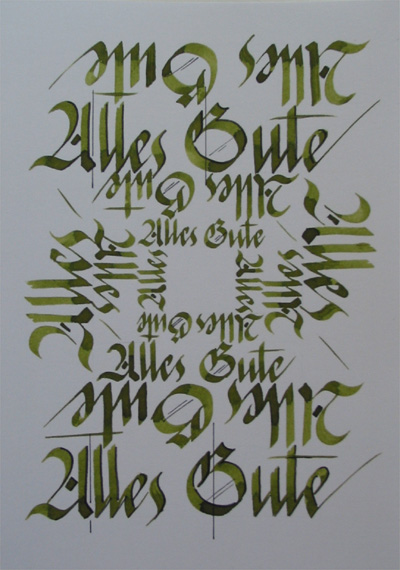 Alles Gute
Alles Gute
Alles Gute
Alles Gute
Alles
Alles
Alles
Alles
Alles
Alles
Alles Gute
Alles Gute
Alles Gute
Alles Gute